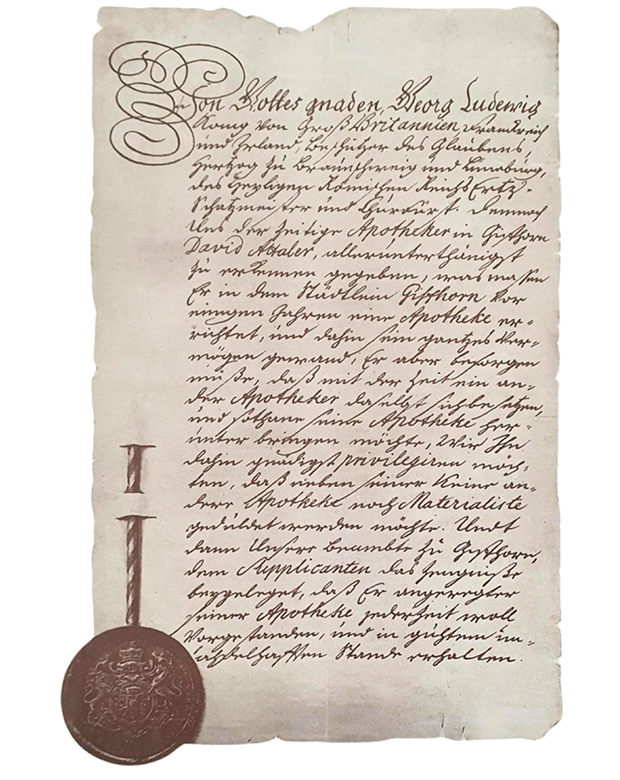 Von Gottes gnaden, Georg Ludewig
König von Groß Britannien, Franckreich
und Irland, Beschützer des Glaubens
Hertzog zu Braunschweig und Lüneburg,
des Heyligen Römischen Reichs Ertz-
Schatzmeister und Churfürst. Demnach
Uns der zeitige Apotheker in Gifthorn
David Attaler, allerunterthänigst
zu erkennen gegeben, was maßen
Er in dem Städtlein Gifthorn vor
einigen Jahren eine Apotheke er-
richtet, und dahin sein gantzes Ver-
mögen gewand, Er aber besorgen
müße, daß mit der Zeit ein an-
der Apotheker daselbst sich besetzen,
und sothane seine Apotheke her-
unter bringen möchte, Wir Ihn
dahin gnädigst privilegiren möch-
ten, daß neben seiner keine an-
dere Apotheke noch Materialiste
geduldet werden möchte. Undt
dann Unsere Beambte zu Gifthorn,
dem Supplicanten das Zeugniße
beygeleget, daß Er angeregter
seiner Apotheke jederzeit woll
vorgestanden, und in guhtem un-
tadelhafften Stande erhalten.